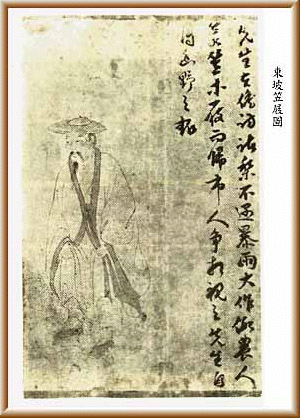 東坡笠屐圖
先生在儋訪諸黎不遇暴雨大作假農人
箬笠木屐而歸市人爭相視之先生自
得幽野之趣